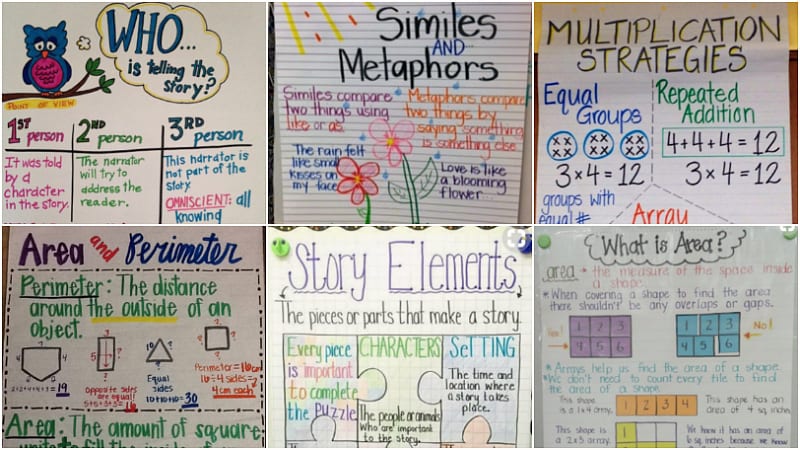 WHO...
is telling the
story?
POINT OF VIEW
1ST
person
2ND
person
3RD
person
It was told
by a
character
in the story.
The narrator
will try to
address the
reader.
This narrator is
not part of the
story
OMNISCIENT: all
knowing
Similes
AND
Metaphors
Similes compare
two things using
like or as.
Metaphors compare
two things by
saying something
is something else
The rain felt
like small
kisses on
my face.
Love is like
a blooming
flower
MULTIPLICATION
STRATEGIES
Equal
Groups
3×4=12
groups with
equal #
Repeated
Addition
4+4+4=12
3×4=12
Array
Area and Perimeter
Perimeter: The distance
around the outside of an
object.
Opposite sides
are equal!
Equal
sides
10+10+10=30
Perimeter=16cm
4cm each
Area: The amount of square
Story Elements
The pieces or parts that make a story.
Every piece
is important
to complete
the Puzzle
CHARACTERS
The people or animals
who are important
to the story.
SETTING
The time and
location where
a story takes
place.
What is Area?
area → the measure of the space inside
a shape.
*When covering a shape to find the area
there shouldn't be any overlaps or gaps.
Yes!
1 2 3
4 5 6
1 2 3
4 5 6
No!
*Arrays help us find the area of a shape.
*We don't need to count every tile to find
the area of a shape.
This shape
is a 1x4 array.
1 2 3 4
This shape has an
area of 4 sq. inches
This shape is
a 2x3 array.
1
We know it has an area of
6 sq. inches because we know